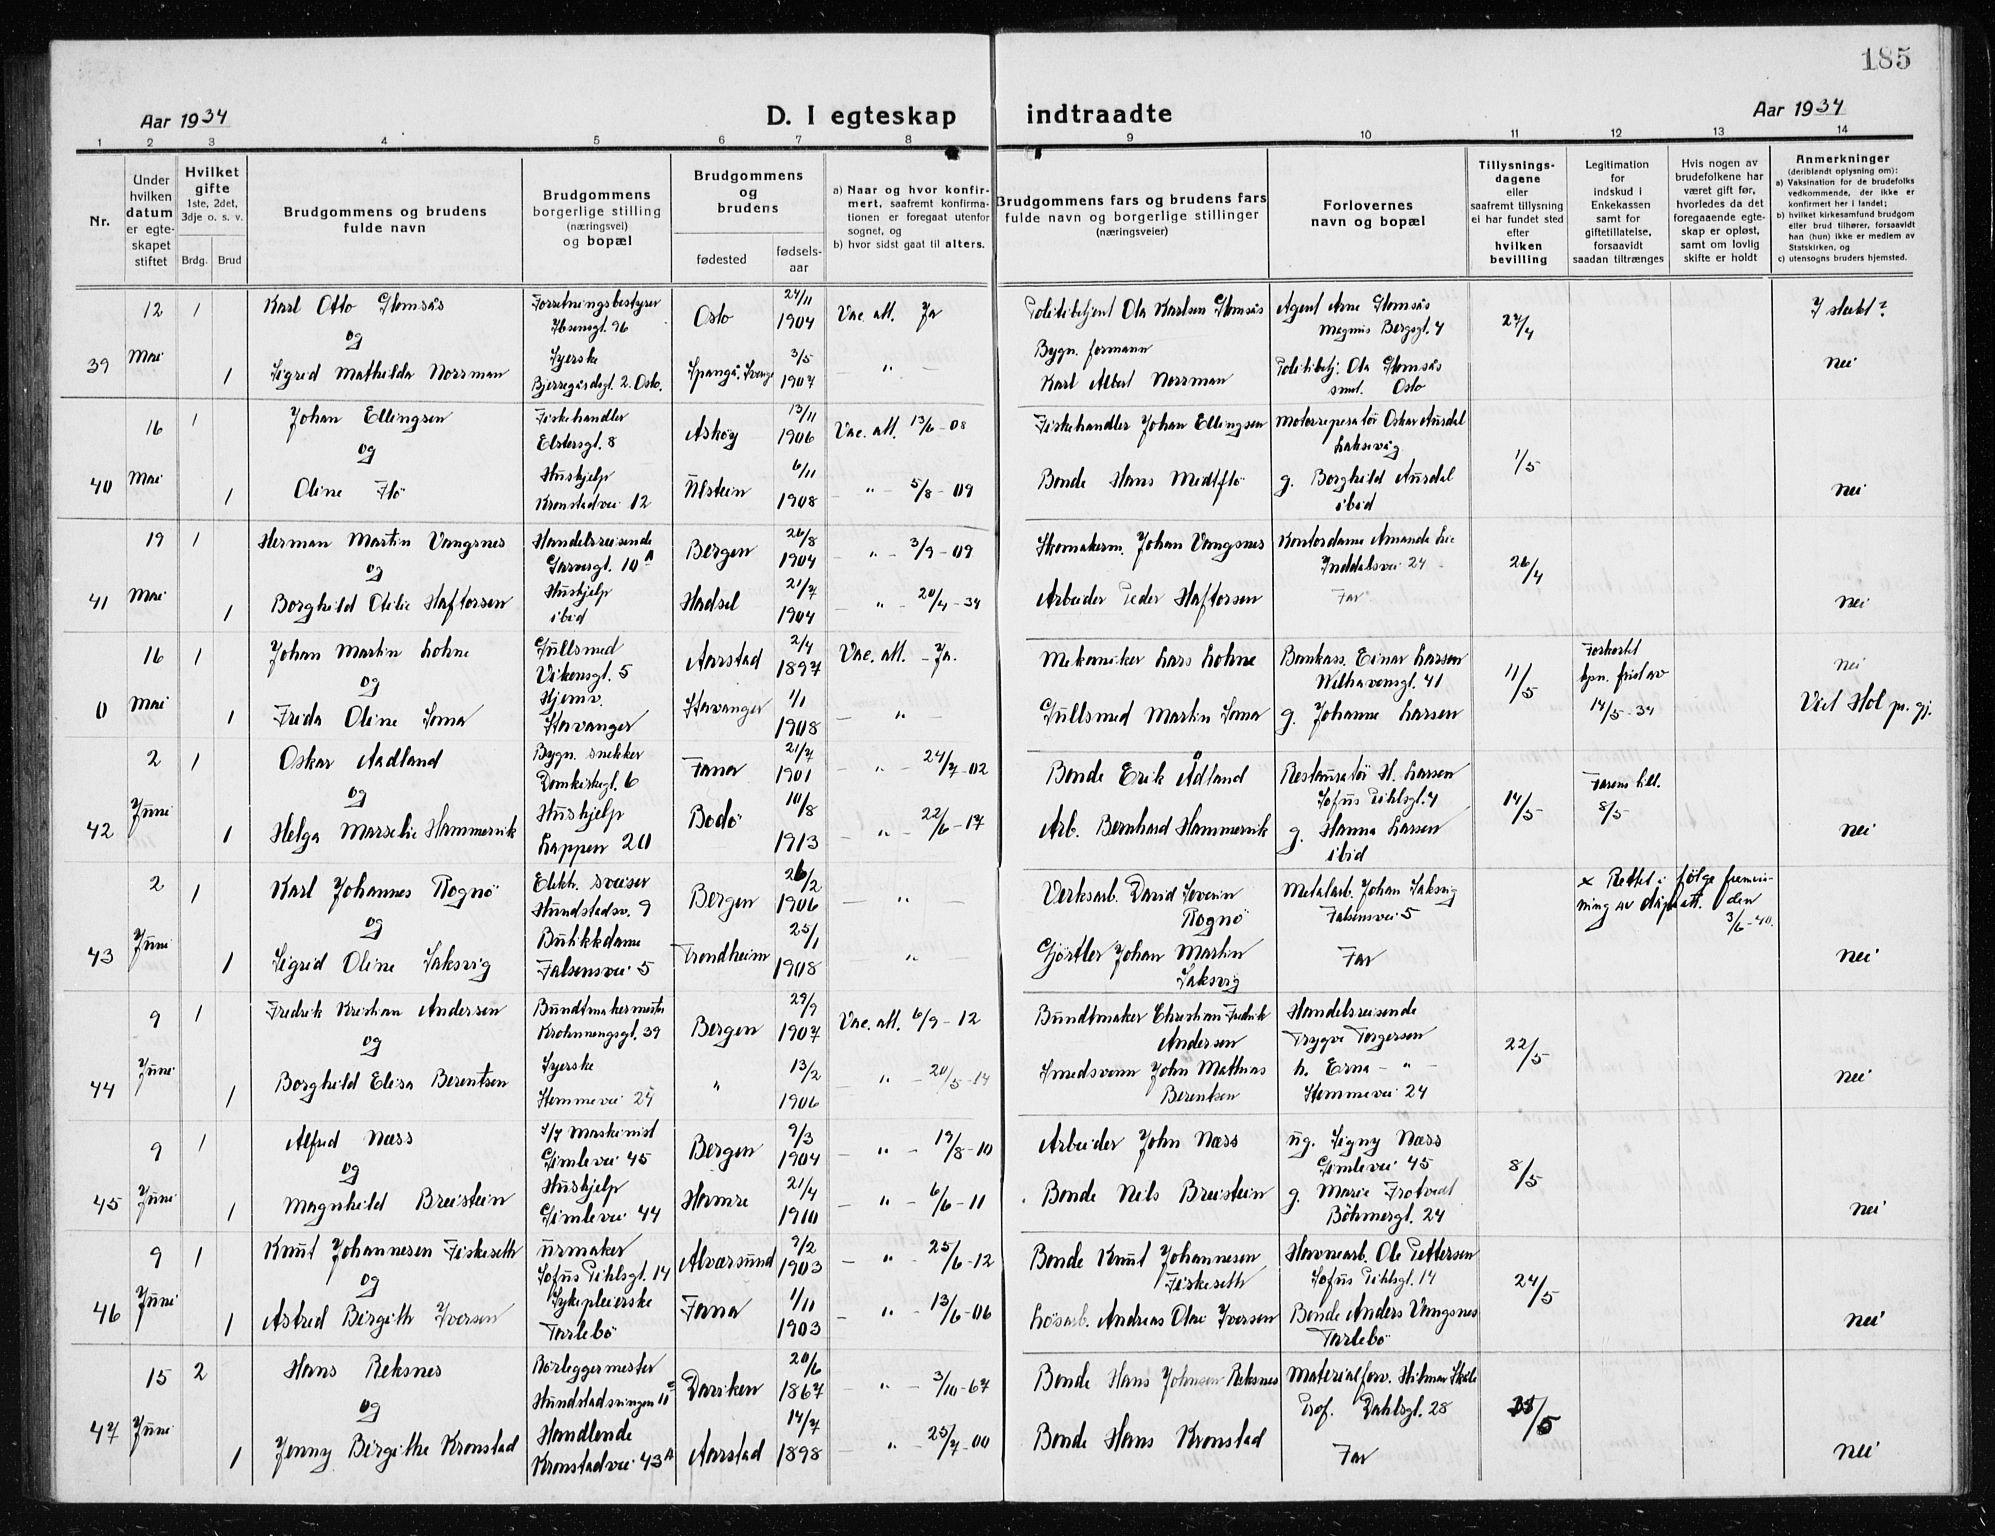 185
Aar 1934
D. I egteskap indtraadte
Aar 1934
1 2 3 4 5 6 7 8 9 10 11 12 13 14
Nr.
Under hvilken datum er egteskapet stiftet
Hvilket gifte 1ste, 2det, 3dje o. s. v.
Brdg. Brud
Brudgommens og brudens fulde navn
Brudgommens borgerlige stilling (næringsvei) og bopæl
Brudgommens og brudens
fødested fødsels-aar
a) Naar og hvor konfirmert, saafremt konfirmationen er foregaat utenfor sognet, og
b) hvor sidst gaat til alters.
Brudgommens fars og brudens fars fulde navn og borgerlige stillinger (næringsveier)
Forlovernes navn og bopæl
Tillysningsdagene eller saafremt tillysning ei har fundet sted efter hvilken bevilling
Legitimation for indskud i Enkekassen samt for giftetillatelse, forsaavidt saadan tiltrænges
Hvis nogen av brudefolkene har været gift før, hvorledes da det foregaaende egteskap er opløst, samt om lovlig skifte er holdt
Anmerkninger (deriblandt oplysning om):
a) Vaksination for de brudefolks vedkommende, der ikke er konfirmert her i landet;
b) hvilket kirkesamfund brudgom eller brud tilhører, forsaavidt han (hun) ikke er medlem av Statskirken, og
c) utensogns bruders hjemsted.
39 12 Mai 1 Karl Otto Glomsås Forretningsbestyrer Ibsensgt. 96 Oslo 24/11 1904 Vac. att. Ja Politibetjent Ola Karlsen Glomsås Agent Arne Glomsås Magnus Bergsgt. 4 27/4 I slekt?
og
1 Sigrid Mathilda Norrman Syerske Bjerregårdsgt. 2. Oslo. Spangå. Sverge 3/5 1907 — " — Bygn. formann Karl Albert Norrman Politibetj. Ola Glomsås smst. Oslo nei
40 16 Mai 1 Johan Ellingsen Fiskehandler Elstersgt. 8 Askøy 13/11 1906 Vac. att. 13/6 - 08 Fiskehandler Johan Ellingsen Motorreperatør Oskar Ausdal Laksevåg 1/5
og
1 Oline Flö Hushjelp Kronstadvei 12 Ulstein 6/11 1908 — " — 5/8 - 09 Bonde Hans Medtflö g. Borghild Ausdal ibid nei
41 19 Mai 1 Herman Martin Vangsnes Handelsreisende Garvergt. 10 A Bergen 26/8 1904 — " — 3/9 - 09 Skomakerm. Johan Vangsnes Kontordame Amanda Lie Inddalsvei 24 26/4
og
1 Borghild Otilie Haftorsen Hushjelp ibid Hadsel 21/7 1904 — " — 20/4 - 34 Arbeider Peder Haftorsen Far nei
0 16 Mai 1 Johan Martin Lohne Gullsmed Vikensgt. 5 Aarstad 2/4 1897 Vac. att. - Ja. Mekaniker Lars Lohne Bankass. Einar Larsen Welhavensgt. 41 11/5 Forkortet lysn. frist av 14/5 - 34 nei
og
1 Frida Oline Soma Hjemv. Stavanger Stavanger 1/1 1908 — " — Gullsmed Martin Soma g. Johanne Larsen Viet Hol pr. gj.
42 2 Juni 1 Oskar Aadland Bygn. snekker Domkirkegt. 6 Fana 21/7 1901 — " — 24/7 - 02 Bonde Erik Ådland Restauratør H. Larsen Sofus Pihlsgt. 4 14/5 Farens till. 8/5
og
1 Helga Marselie Hammervik Hushjelp Lappen 20 Bodö 10/8 1913 — " — 22/6 - 17 Arb. Bernhard Hammervik g. Hanna Larsen ibid nei
43 2 Juni 1 Karl Johannes Rognö Elektr. sveiser Hunstadsv. 9 Bergen 26/2 1906 — " — Verksarb. David Severin Rognö Metalarb. Johan Saksvig Falsensvei 5 x Rettet i følge fremvisning av dåpsatt. den 3/6 - 40.
og
1 Sigrid Oline Saksvig Butikkdame Falsensvei 5 Trondheim 25/1 1908 — " — Gjörtler Johan Martin Saksvig Far nei
44 9 Juni 1 Fredrik Kristian Andersen Bundtmakermester Krohnengsgt. 39 Bergen 29/9 1907 Vac. att. 6/9 - 12 Bundtmaker Christian Fredrik Andersen Handelsreisende Trygve Torgersen 22/5
og
1 Borghild Elisa Berentsen Syerske Stemmevei 24 " 13/2 1906 — " — 20/5 - 14 Smedsvenn John Mathias Berentsen h. Erna — " — Stemmevei 24 nei
45 9 Juni 1 Alfred Næss Maskinist Gimlevei 45 Bergen 9/3 1904 — " — 19/8 - 10 Arbeider John Næss ug. Signy Næss Gimlevei 45 8/5
og
1 Magnhild Breistein Hushjelp Gimlevei 44 Hamre 21/4 1910 — " — 6/6 - 11 Bonde Nils Breistein g. Marie Frotvedt Böhmergt. 24 nei
46 9 Juni 1 Knut Johannesen Fiskeseth Urmaker Sofus Pihlsgt. 14 Alversund 9/2 1903 — " — 25/6 - 12 Bonde Knut Johannesen Fiskeseth Havnearb. Ole Pettersen Sofus Pihlsgt. 14 24/5
og
1 Astrid Birgith Iversen Sykepleierske Tarlebö Fana 1/11 1903 — " — 13/6 - 06 Løsarb. Andreas Olai Iversen Bonde Anders Vangsnes Tarlebö nei
47 15 Juni 2 Hans Reksnes Rörleggermester Hunstadsvingen 11 Daviken 20/6 1867 — " — 3/10 - 67 Bonde Hans Johnsen Reksnes Materialforv. Hilmar Prof. Dahlsgt. 28 25/5
og
1 Jenny Birgithe Kronstad Handlende Kronstadvei 43 A Aarstad 14/7 1898 — " — 25/7 - 00 Bonde Hans Kronstad Far nei